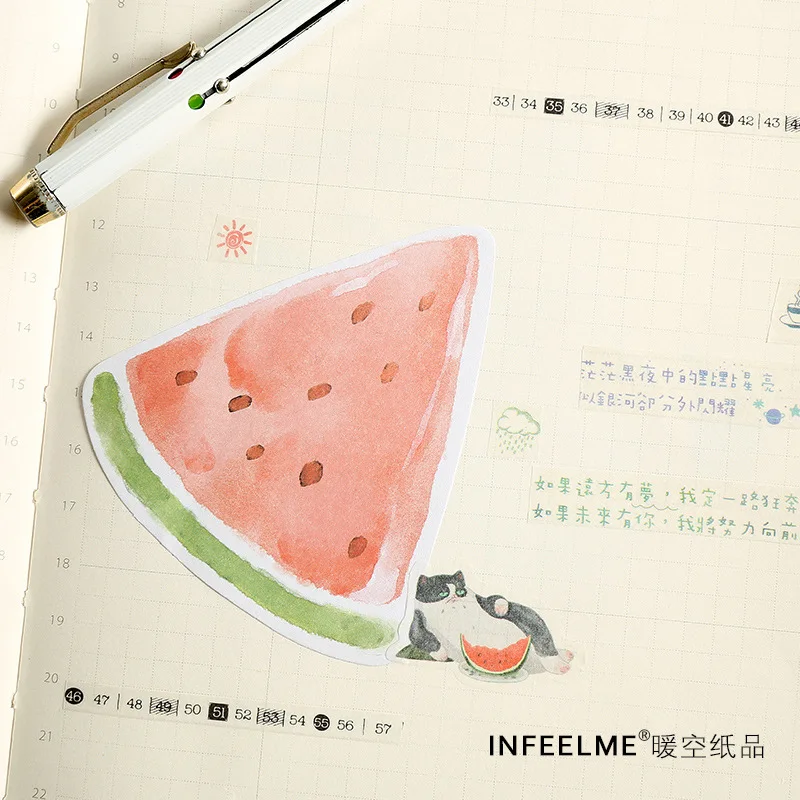 8
9
10
33 34 35 36 37 38 39 40 41 42 43
12
13
14
15
16
17
18
19
20
21
22
茫茫黑夜中的點點星亮
以銀河卻分外閃耀
如果遠方有夢，我定一路狂奔
如果未來有你，我將努力向前
46 47 48 49 50 51 52 53 54 55 56 57
INFEELME®暖空纸品